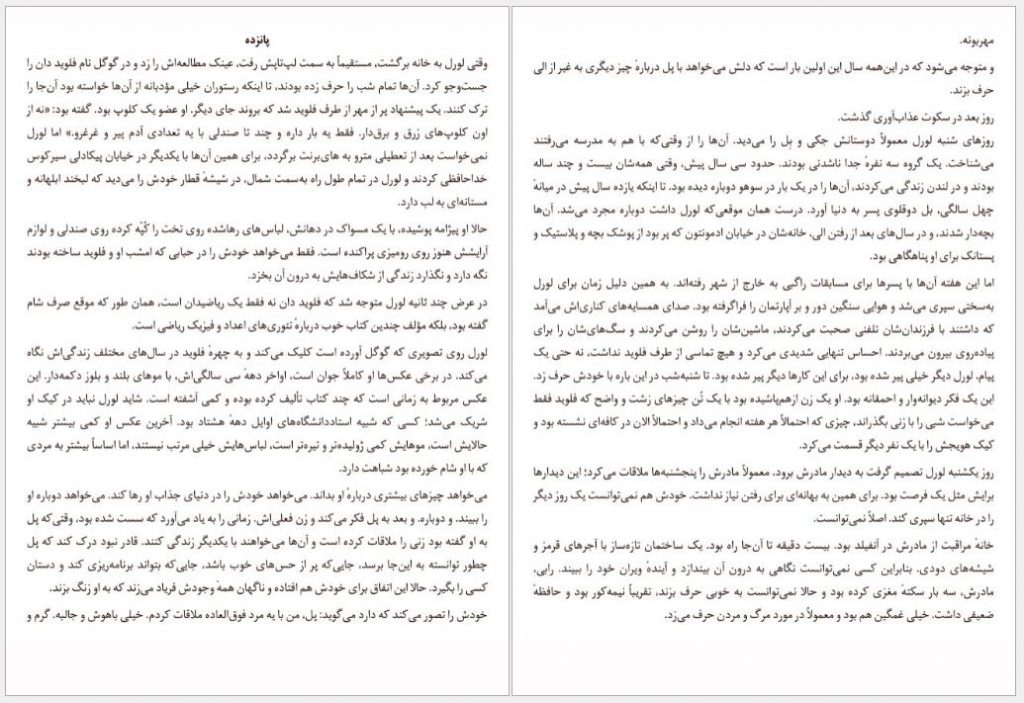 پانزده
وقتی لورل به خانه برگشت، مستقیماً به سمت لپ‌تاپش رفت، عینک مطالعه‌اش را زد و در گوگل نام فلوید دان را
جست‌وجو کرد. آن‌ها تمام شب را حرف زده بودند، تا اینکه رستوران خیلی مؤدبانه از آن‌ها خواسته بود آن‌جا را
ترک کنند. یک پیشنهاد پر از مهر از طرف فلوید شد که بروند جای دیگر. او عضو یک کلوپ بود. گفته بود: «نه از
اون کلوپ‌های زرق و برق‌دار. فقط یه بار داره و چند تا صندلی با یه تعدادی آدم پیر و غرغرو.» اما لورل
نمی‌خواست بعد از تعطیلی مترو به های‌برنت برگردد، برای همین آن‌ها با یکدیگر در خیابان پیکادلی سیرکوس
خداحافظی کردند و لورل در تمام طول راه به‌سمت شمال، در شیشهٔ قطار خودش را می‌دید که لبخند ابلهانه و
مستانه‌ای به لب دارد.
حالا او پیژامه پوشیده، با یک مسواک در دهانش، لباس‌های رهاشده روی تخت را کُپّه کرده روی صندلی و لوازم
آرایشش هنوز روی رومیزی پراکنده است. فقط می‌خواهد خودش را در حبابی که امشب او و فلوید ساخته بودند
نگه دارد و نگذارد زندگی از شکاف‌هایش به درون آن بخزد.
در عرض چند ثانیه لورل متوجه شد که فلوید دان نه فقط یک ریاضیدان است، همان طور که موقع صرف شام
گفته بود، بلکه مؤلف چندین کتاب خوب دربارهٔ تئوری‌های اعداد و فیزیک ریاضی است.
لورل روی تصویری که گوگل آورده است کلیک می‌کند و به چهرهٔ فلوید در سال‌های مختلف زندگی‌اش نگاه
می‌کند. در برخی عکس‌ها او کاملاً جوان است، اواخر دههٔ سی سالگی‌اش، با موهای بلند و بلوز دکمه‌دار. این
عکس مربوط به زمانی است که چند کتاب تألیف کرده بوده و کمی آشفته است. شاید لورل نباید در کیک او
شریک می‌شد؛ کسی که شبیه استاددانشگاه‌های اوایل دههٔ هشتاد بود. آخرین عکس او کمی بیشتر شبیه
حالایش است، موهایش کمی ژولیده‌تر و تیره‌تر است، لباس‌هایش خیلی مرتب نیستند، اما اساساً بیشتر به مردی
که با او شام خورده بود شباهت دارد.
می‌خواهد چیزهای بیشتری دربارهٔ او بداند. می‌خواهد خودش را در دنیای جذاب او رها کند. می‌خواهد دوباره او
را ببیند. و دوباره. و بعد به پل فکر می‌کند و زن فعلی‌اش. زمانی را به یاد می‌آورد که سست شده بود، وقتی‌که پل
به او گفته بود زنی را ملاقات کرده است و آن‌ها می‌خواهند با یکدیگر زندگی کنند. قادر نبود درک کند که پل
چطور توانسته به این‌جا برسد، جایی‌که پر از حس‌های خوب باشد، جایی‌که بتواند برنامه‌ریزی کند و دستان
کسی را بگیرد. حالا این اتفاق برای خودش هم افتاده و ناگهان همهٔ وجودش فریاد می‌زند که به او زنگ بزند.
خودش را تصور می‌کند که دارد می‌گوید: پل، من با یه مرد فوق‌العاده ملاقات کردم. خیلی باهوش و جالبه. گرم و
مهربونه.
و متوجه می‌شود که در این‌همه سال این اولین بار است که دلش می‌خواهد با پل دربارهٔ چیز دیگری به غیر از الی
حرف بزند.
روز بعد در سکوت عذاب‌آوری گذشت.
روزهای شنبه لورل معمولاً دوستانش جکی و بل را می‌دید. آن‌ها را از وقتی‌که با هم به مدرسه می‌رفتند
می‌شناخت. یک گروه سه نفرهٔ جدا ناشدنی بودند. حدود سی سال پیش، وقتی همه‌شان بیست و چند ساله
بودند و در لندن زندگی می‌کردند، آن‌ها را در یک بار در سوهو دوباره دیده بود. تا اینکه یازده سال پیش در میانهٔ
چهل سالگی، بل دوقلوی پسر به دنیا آورد. درست همان موقعی‌که لورل داشت دوباره مجرد می‌شد. آن‌ها
بچه‌دار شدند، و در سال‌های بعد از رفتن الی، خانه‌شان در خیابان ادمونتون که پر بود از پوشک بچه و پلاستیک و
پستانک برای او پناهگاهی بود.
اما این هفته آن‌ها با پسرها برای مسابقات راگبی به خارج از شهر رفته‌اند. به همین دلیل زمان برای لورل
به‌سختی سپری می‌شد و هوایی سنگین دور و بر آپارتمان را فراگرفته بود. صدای همسایه‌های کناری‌اش می‌آمد
که داشتند با فرزندان‌شان تلفنی صحبت می‌کردند، ماشین‌شان را روشن می‌کردند و سگ‌های‌شان را برای
پیاده‌روی بیرون می‌بردند. احساس تنهایی شدیدی می‌کرد و هیچ تماسی از طرف فلوید نداشت، نه حتی یک
پیام. لورل دیگر خیلی پیر شده بود، برای این کارها دیگر پیر شده بود. تا شنبه‌شب در این باره با خودش حرف زد.
این یک فکر دیوانه‌وار و احمقانه بود. او یک زن ازهم‌پاشیده بود با یک تُن چیزهای زشت و واضح که فلوید فقط
می‌خواست شبی را با زنی بگذراند، چیزی که احتمالاً هر هفته انجام می‌داد و احتمالاً الان در کافه‌ای نشسته بود و
کیک هویجش را با یک نفر دیگر قسمت می‌کرد.
روز یکشنبه لورل تصمیم گرفت به دیدار مادرش برود. معمولاً مادرش را پنجشنبه‌ها ملاقات می‌کرد؛ این دیدارها
برایش مثل یک فرصت بود. برای همین به بهانه‌ای برای رفتن نیاز نداشت. خودش هم نمی‌توانست یک روز دیگر
را در خانه تنها سپری کند. اصلاً نمی‌توانست.
خانهٔ مراقبت از مادرش در آنفیلد بود. بیست دقیقه تا آن‌جا راه بود. یک ساختمان تازه‌ساز با آجرهای قرمز و
شیشه‌های دودی. بنابراین کسی نمی‌توانست نگاهی به درون آن بیندازد و آیندهٔ ویران خود را ببیند. رابی،
مادرش، سه بار سکتهٔ مغزی کرده بود و حالا نمی‌توانست به خوبی حرف بزند، تقریباً نیمه‌کور بود و حافظهٔ
ضعیفی داشت. خیلی غمگین هم بود و معمولاً در مورد مرگ و مردن حرف می‌زد.